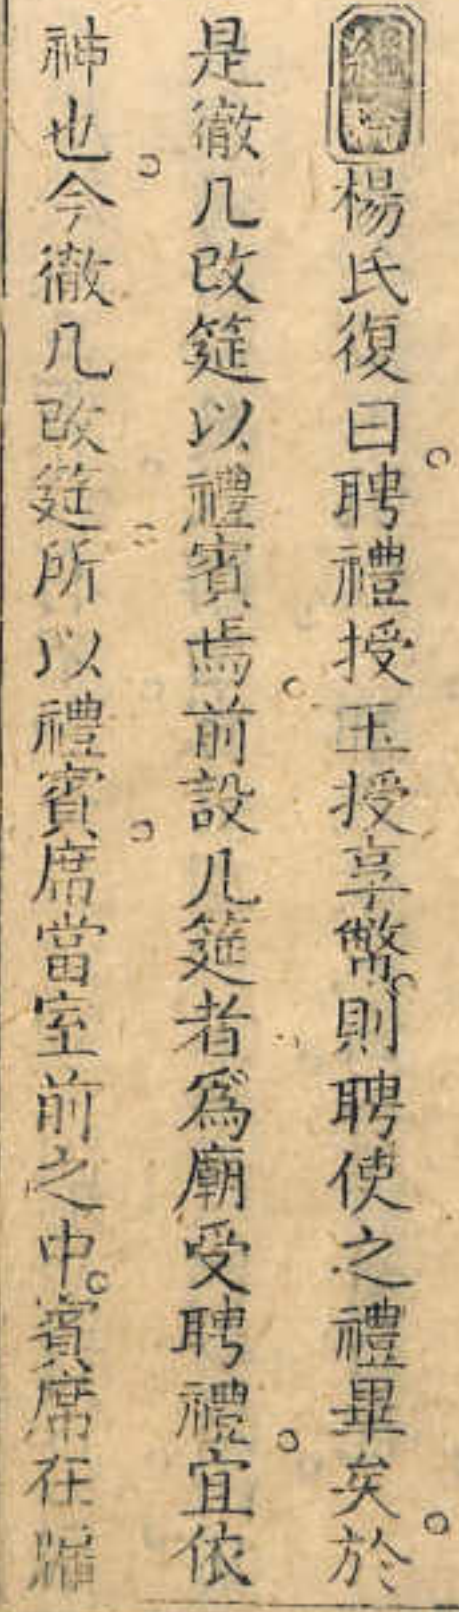 楊氏復曰聘禮授玉授享幣則聘使之禮畢矣於
是徹几改筵以禮賓焉前設几筵者為廟受聘禮宜依
神也今徹几改筵所以禮賓席當室前之中賓席在